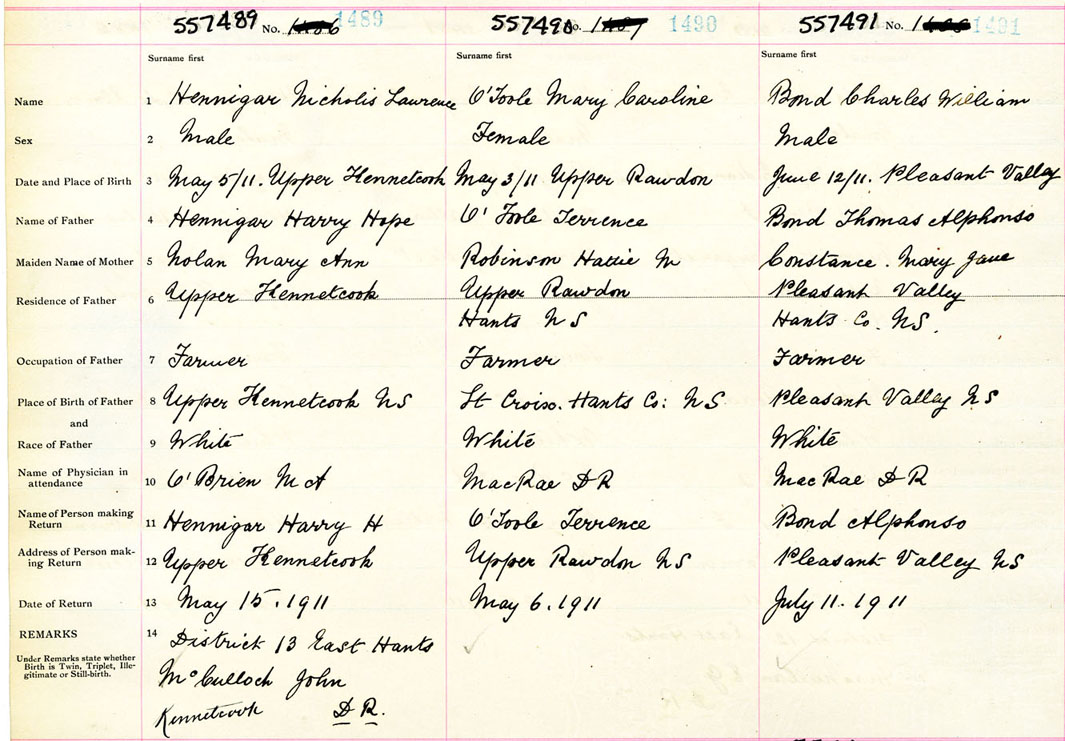 557489 No. 1486 1489 557490 No. 1487 1490 557491 No. 1488 1491
Surname first Surname first Surname first
Name 1 Hennigar Nicholis Lawrence O'Toole Mary Caroline Bond Charles William
Sex 2 Male Female Male
Date and Place of Birth 3 May 5/11. Upper Kennetcook May 3/11 Upper Rawdon June 12/11. Pleasant Valley
Name of Father 4 Hennigar Harry Hope O'Toole Terrence Bond Thomas Alphonso
Maiden Name of Mother 5 Nolan Mary Ann Robinson Hattie M Constance. Mary Jane
Residence of Father 6 Upper Kennetcook Upper Rawdon Pleasant Valley
Hants NS Hants Co. NS.
Occupation of Father 7 Farmer Farmer Farmer
Place of Birth of Father 8 Upper Kennetcook NS St Croix. Hants Co: NS Pleasant Valley NS
and
Race of Father 9 White White White
Name of Physician in
attendance 10 O'Brien M A MacRae D R MacRae D R
Name of Person making
Return 11 Hennigar Harry H O'Toole Terrence Bond Alphonso
Address of Person mak-
ing Return 12 Upper Kennetcook Upper Rawdon NS Pleasant Valley NS
Date of Return 13 May 15. 1911 May 6. 1911 July 11. 1911
REMARKS 14 District 13 East Hants
Under Remarks state whether
Birth is Twin, Triplet, Ille-
gitimate or Still-birth.
McCulloch John
Kennetcook D.R.